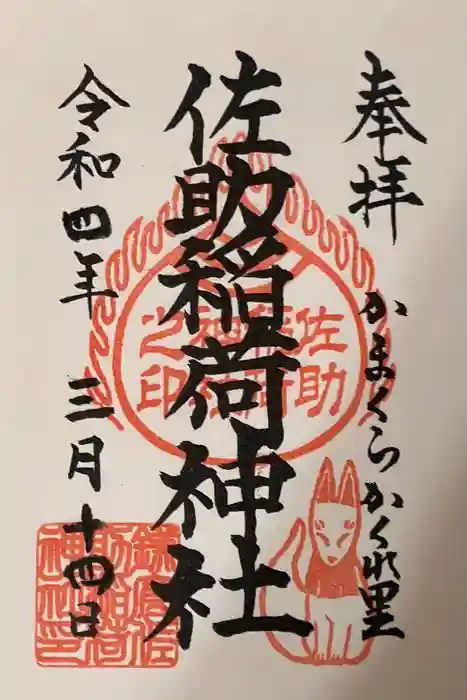 奉拝
かまくらかくれ里
佐助稲荷神社
令和四年 三月 十四日
佐助稲荷神社之印